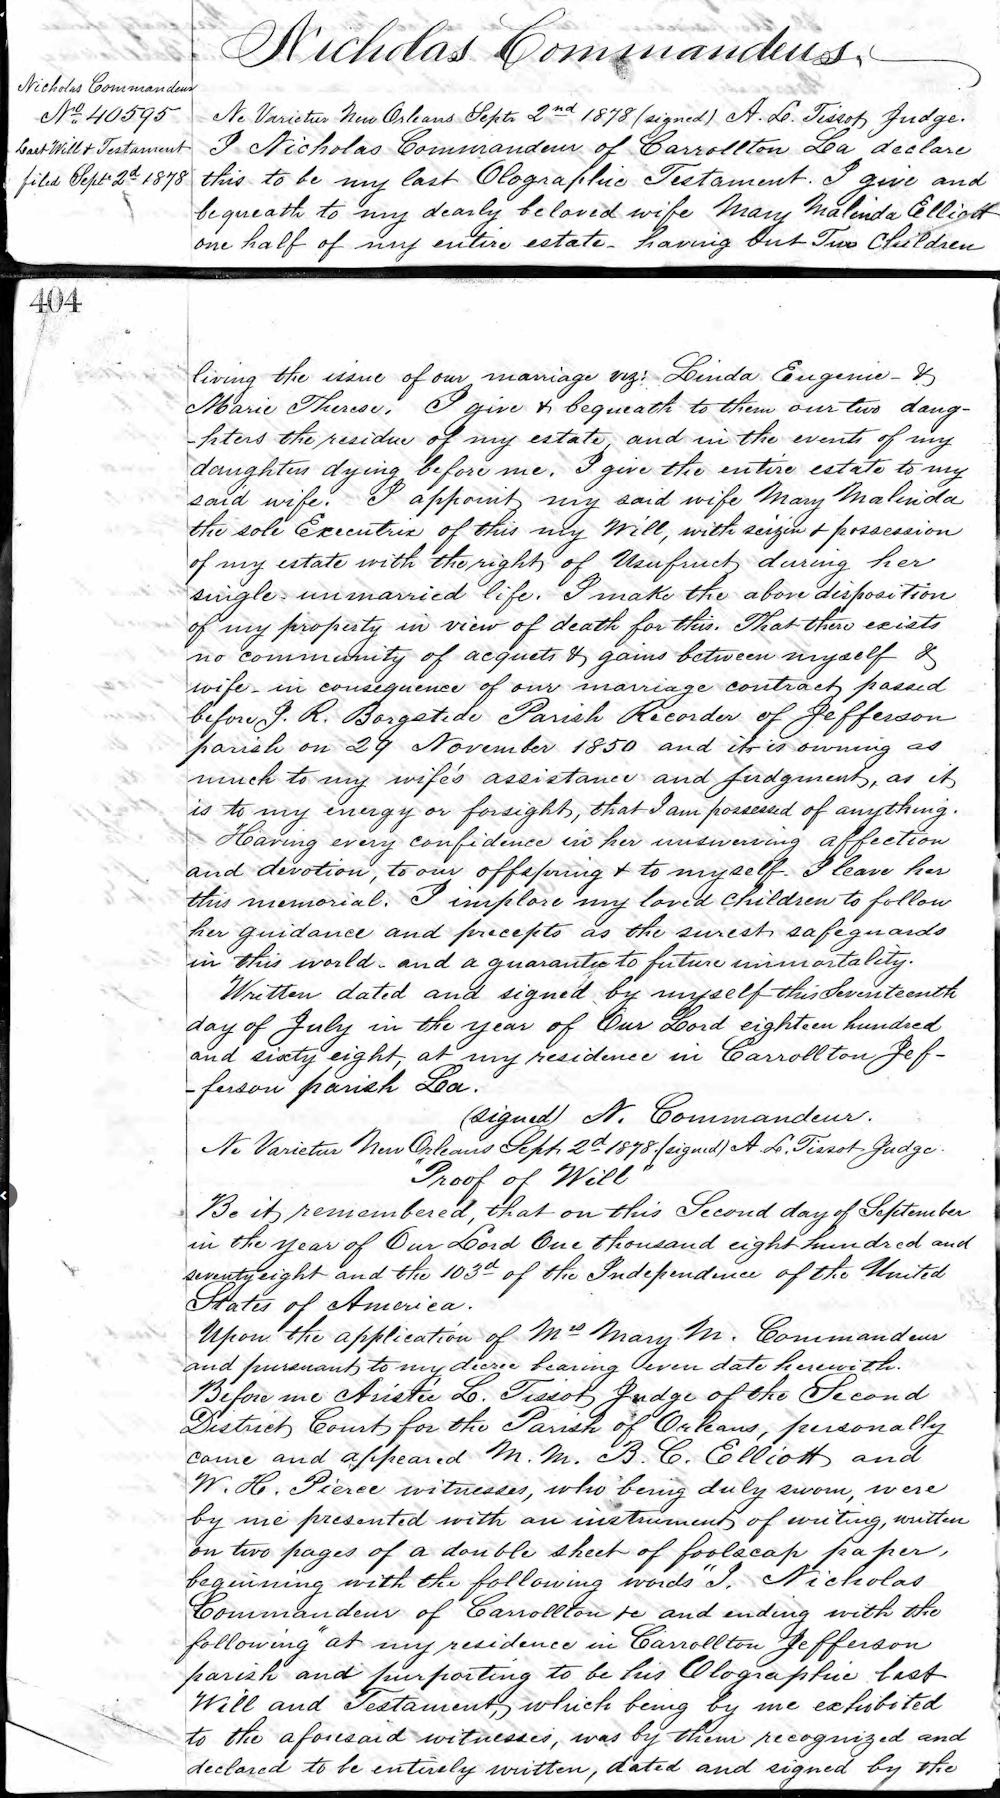 Nicholas Commandeurs.
Nicholas Commandeur
No. 40595
Last Will & Testament
filed Sept. 2d 1878
Ne Varietur New Orleans Sept. 2nd 1878 (signed) A. L. Tissot Judge.
I Nicholas Commandeur of Carrollton La declare
this to be my last Olographic Testament. I give and
bequeath to my dearly beloved wife Mary Malinda Elliott
one half of my entire estate - having but Two Children
404
living the issue of our marriage viz: Linda Eugenie - &
Marie Therese. I give & bequeath to them our two daug-
-hters the residue of my estate, and in the events of my
daughters dying before me. I give the entire estate to my
said wife. I appoint my said wife Mary Malinda
the sole Executrix of this my Will, with seizin & possession
of my estate with the right of Usufruct during her
single - unmarried life. I make the above disposition
of my property in view of death for this. That there exists
no community of acquets & gains between myself &
wife - in consequence of our marriage contract passed
before J. R. Borgstede Parish Recorder of Jefferson
parish on 29 November 1850 and it is owning as
much to my wife's assistance and judgment, as it
is to my energy or forsight, that I am possessed of anything.
Having every confidence in her unswerving affection
and devotion, to our offspring & to myself - I leave her
this memorial. I implore my loved children to follow
her guidance and precepts as the surest safeguards
in this world - and a guarantee to future immortality.
Written dated and signed by myself this Seventeenth
day of July in the year of Our Lord eighteen hundred
and sixty eight, at my residence in Carrollton Jef-
-ferson parish La.
(signed) N. Commandeur.
Ne Varietur New Orleans Sept. 2d 1878. (signed) A. L. Tissot Judge.
"Proof of Will"
Be it remembered, that on this Second day of September
in the year of Our Lord One thousand eight hundred and
seventy eight and the 103d of the Independence of the United
States of America.
Upon the application of Mrs Mary M. Commandeur
and pursuant to my decree bearing even date herewith.
Before me Aristée L. Tissot Judge of the Second
District Court for the Parish of Orleans, personally
came and appeared M. M. B. C. Elliott and
W. H. Pierce witnesses, who being duly sworn, were
by me presented with an instrument of writing, written
on two pages of a double sheet of foolscap paper,
beginning with the following words "I. Nicholas
Commandeur of Carrollton &c and ending with the
following "at my residence in Carrollton Jefferson
parish and purporting to be his Olographic last
Will and Testament, which being by me exhibited
to the aforesaid witnesses, was by them recognized and
declared to be entirely written, dated and signed by the